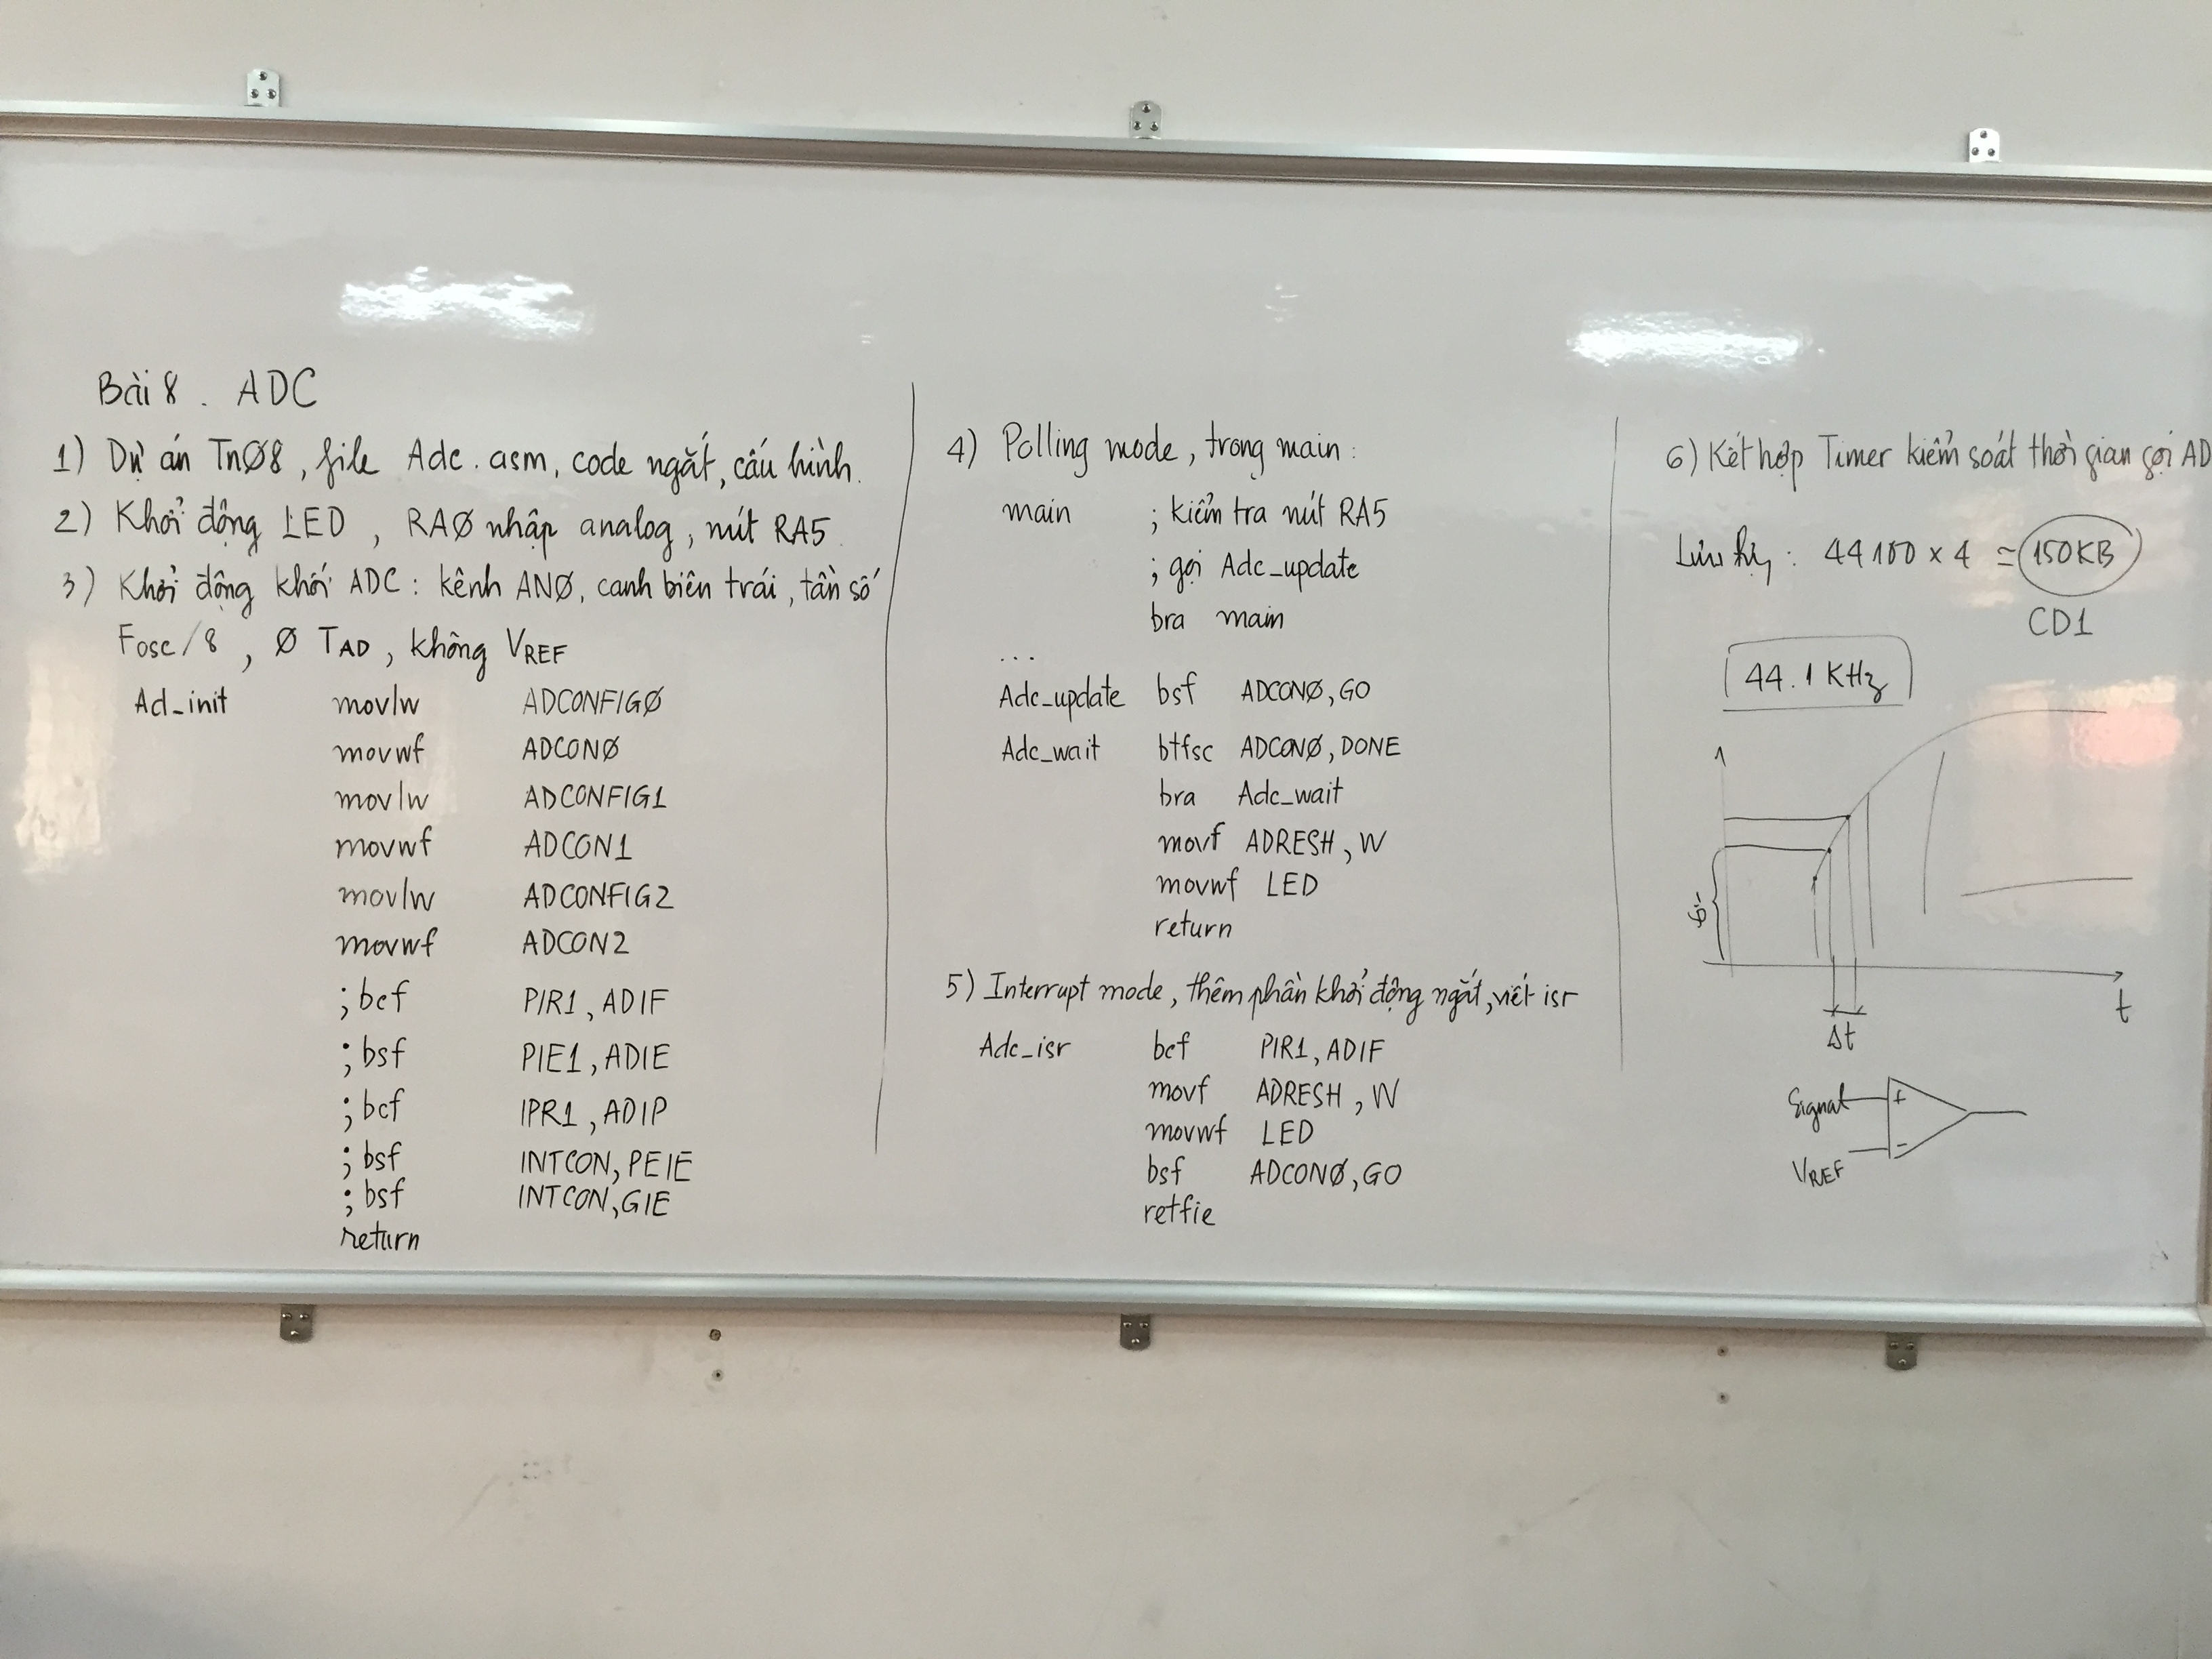 Bài 8. ADC
1) Dự án TnØ8, file Adc.asm, code ngắt, cấu hình.
2) Khởi động LED, RAØ nhập analog, nút RA5
3) Khởi động khối ADC: kênh ANØ, canh biên trái, tần số
Fosc/8, Ø TAD, không VREF
Ad_init movlw ADCONFIGØ
movwf ADCONØ
movlw ADCONFIG1
movwf ADCON1
movlw ADCONFIG2
movwf ADCON2
;bcf PIR1, ADIF
;bsf PIE1, ADIE
;bcf IPR1, ADIP
;bsf INTCON, PEIE
;bsf INTCON, GIE
return
4) Polling mode, trong main:
main ; kiểm tra nút RA5
; gọi Adc_update
bra main
...
Adc_update bsf ADCONØ, GO
Adc_wait btfsc ADCONØ, DONE
bra Adc_wait
movf ADRESH, W
movwf LED
return
5) Interrupt mode, thêm phần khởi động ngắt, viết isr
Adc_isr bcf PIR1, ADIF
movf ADRESH, W
movwf LED
bsf ADCONØ, GO
retfie
6) Kết hợp Timer kiểm soát thời gian gọi AD
Lưu : 44100 x 4 = 150KB
CD1
44.1 KHz
t
Δt
Signal +
VREF -